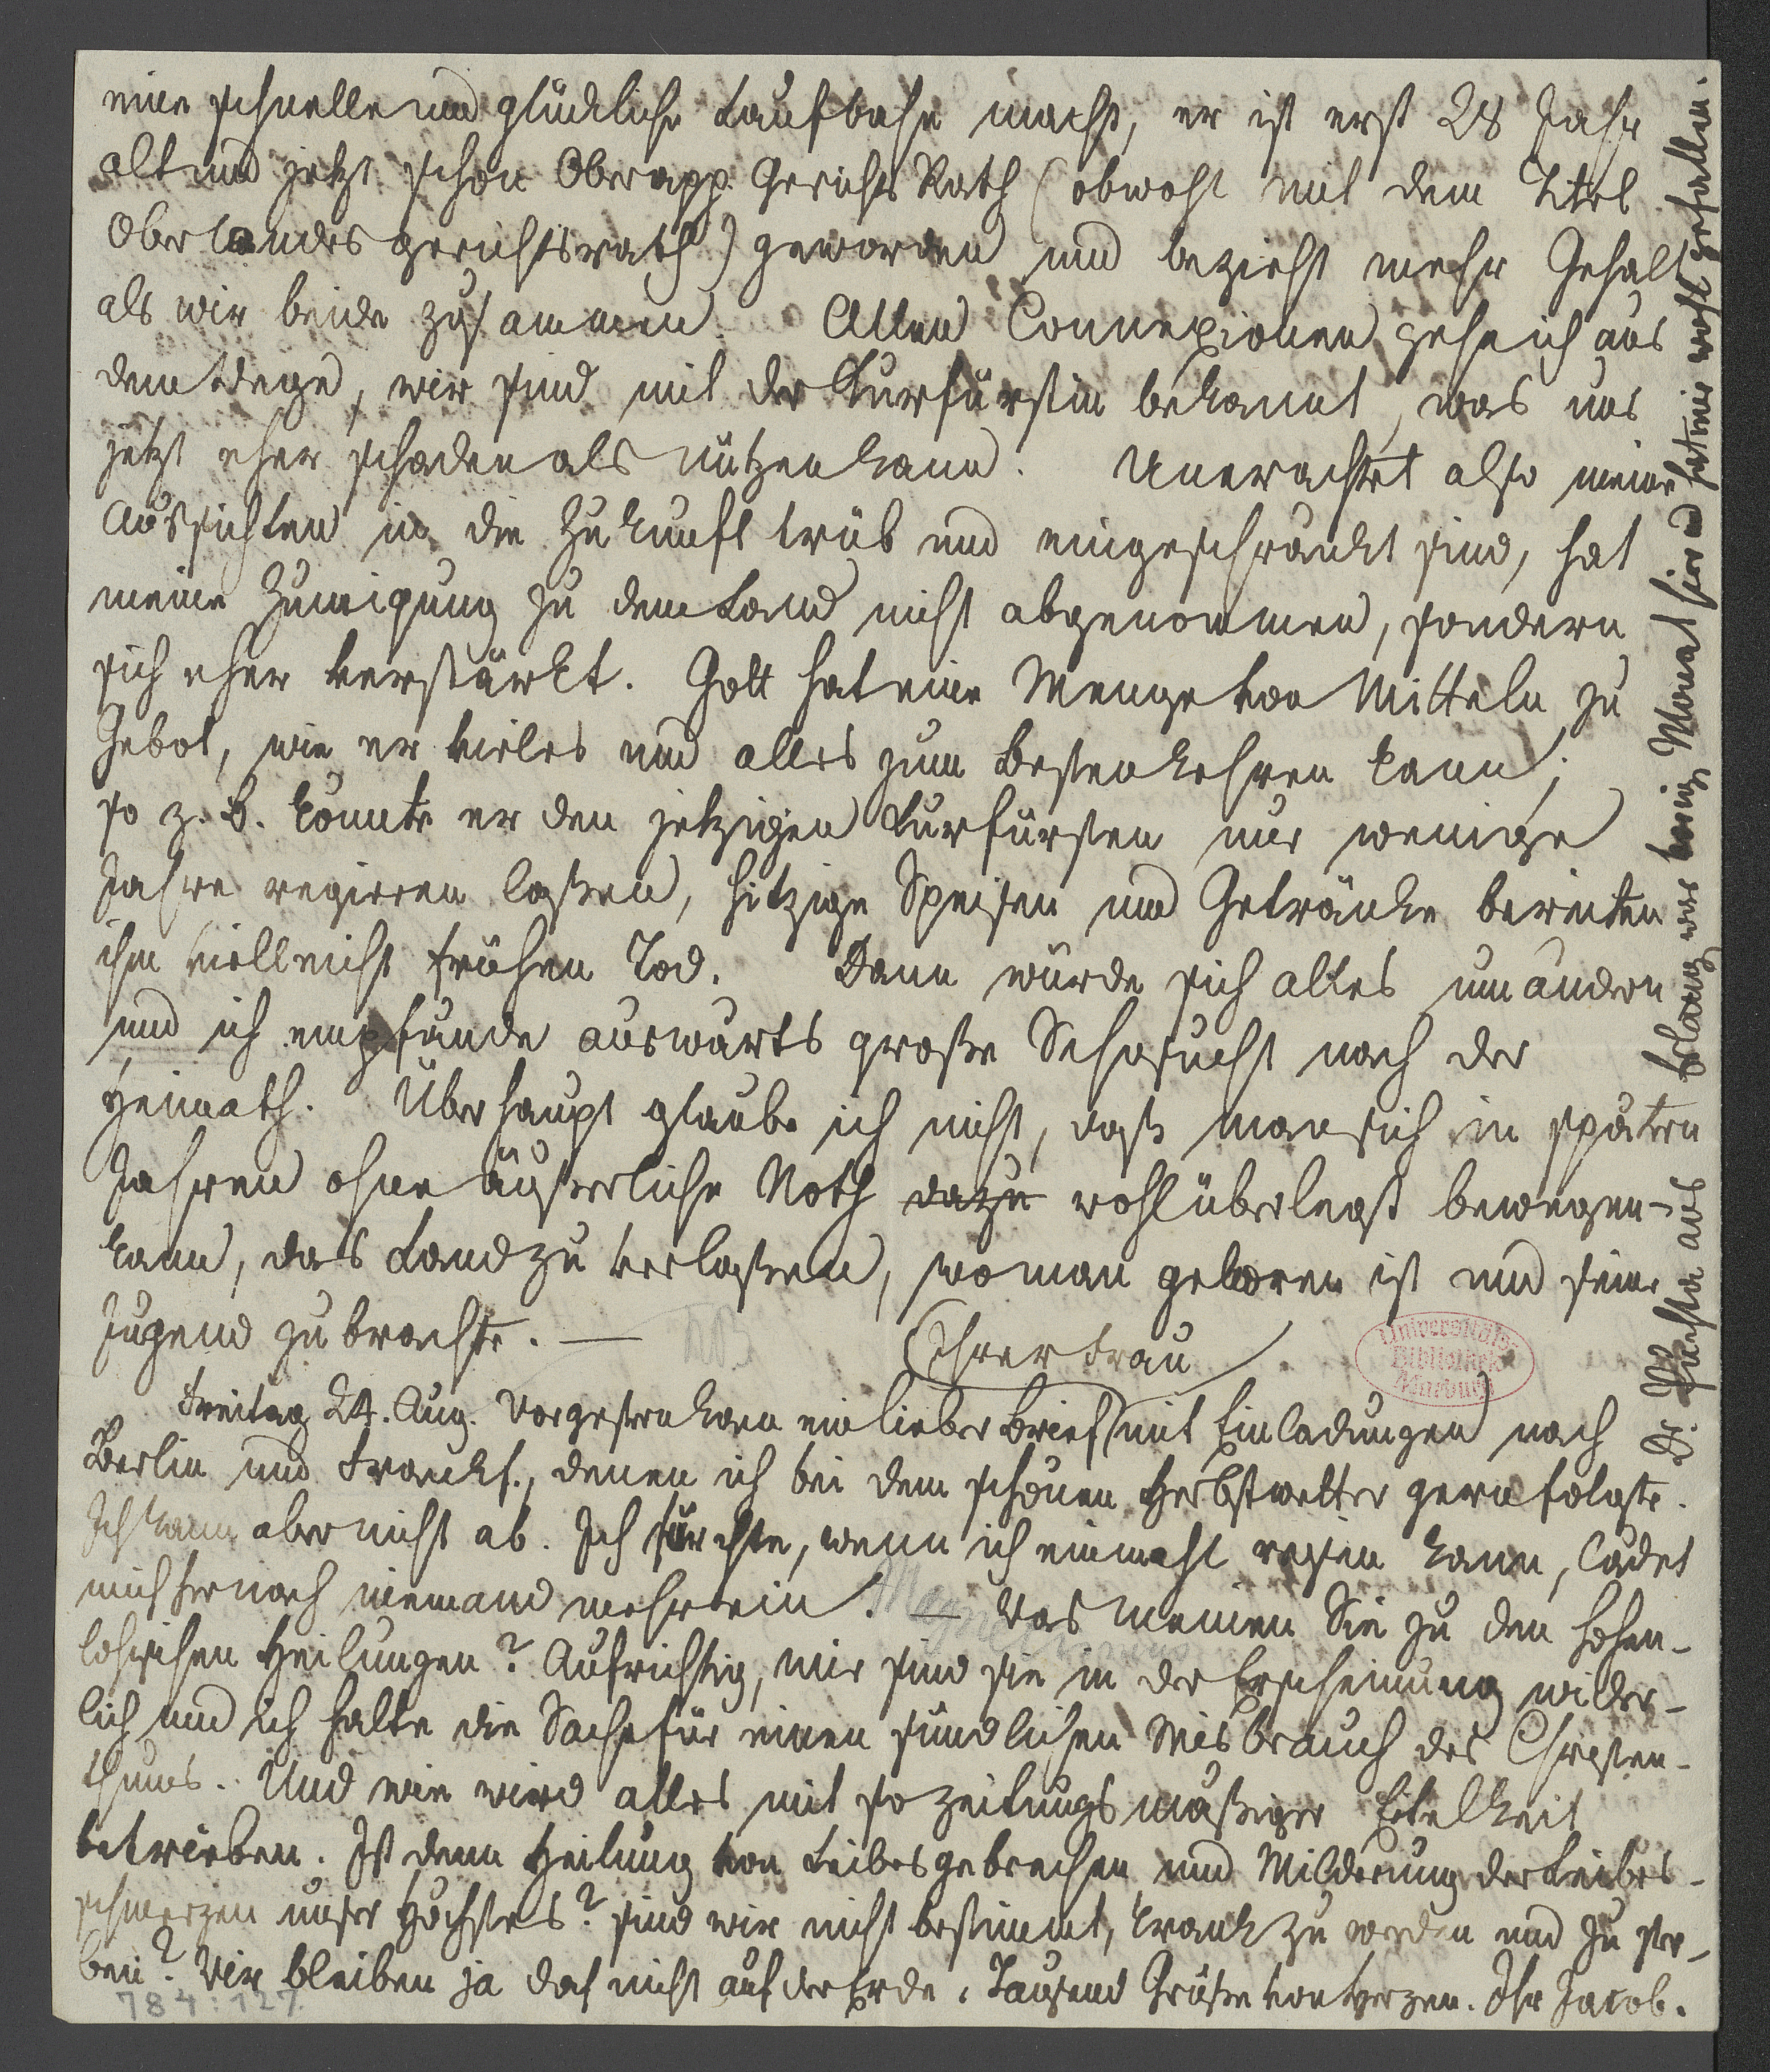 eine schnelle und glückliche Laufbahn macht, er ist erst 28 Jahr
alt und jetzt schon Oberapp. Gerichts Rath (obwohl mit dem Titel
Oberlandesgerichtsrath) geworden und bezieht mehr Gehalt
als wir beide zusammen. Allen Connexionen gehe ich aus
dem Wege, wir sind mit der Kurfürstin bekannt, was uns
jetzt eher schaden als nützen kann. Unerachtet also meine
Aussichten in die Zukunft trüb und eingeschränkt sind, hat
meine Zuneigung zu dem Land nicht abgenommen, sondern
sich eher verstärkt. Gott hat eine Menge von Mitteln zu
Gebot, wie er vieles und alles zum Besten kehren kann;
so z. B. könnte er den jetzigen Kurfürsten nur wenige
Jahre regieren laßen, hitzige Speisen und Getränke bereiten
ihm vielleicht frühen Tod. Dann würde sich alles umändern
und ich empfände auswärts große Sehnsucht nach der
Heimath. Überhaupt glaube ich nicht, daß man sich in spätern
Jahren ohne äußerliche Noth dazu wohlüberlegt bewegen
kann, das Land zu verlaßen, wo man geboren ist und seine
Jugend zubrachte. —
Ihrer Frau
Freitag 24. Aug. Vorgestern kam ein lieber Brief mit Einladungen nach
Berlin und Frankf., denen ich bei dem schönen Herbstwetter gern folgte.
Ich kann aber nicht ab. Ich fürchte, wenn ich einmahl reisen kann, ladet
mich hernach niemand mehr ein. — Was meinen Sie zu den hohen-
lohischen Heilungen? Aufrichtig, mir sind sie in der Erscheinung wider-
lich und ich halte die Sache für einen sündlichen Misbrauch des Christen-
thums. Und wie wird alles mit so zeitungsmäßiger Eitelkeit
betrieben. Ist denn Heilung von Leibesgebrechen und Milderung der Leibes-
schmerzen unser Höchstes? sind wir nicht bestimmt, krank zu werden und zu ster-
ben? Wir bleiben ja doch nicht auf der Erde. Tausend Grüße von Herzen. Ihr Jacob.
Dr. Puchta aus Erlang war vorig. Monat hier und hat mir wohl gefallen.
Universitäts
Bibliothek
Marburg
Magnetismus
784:127.